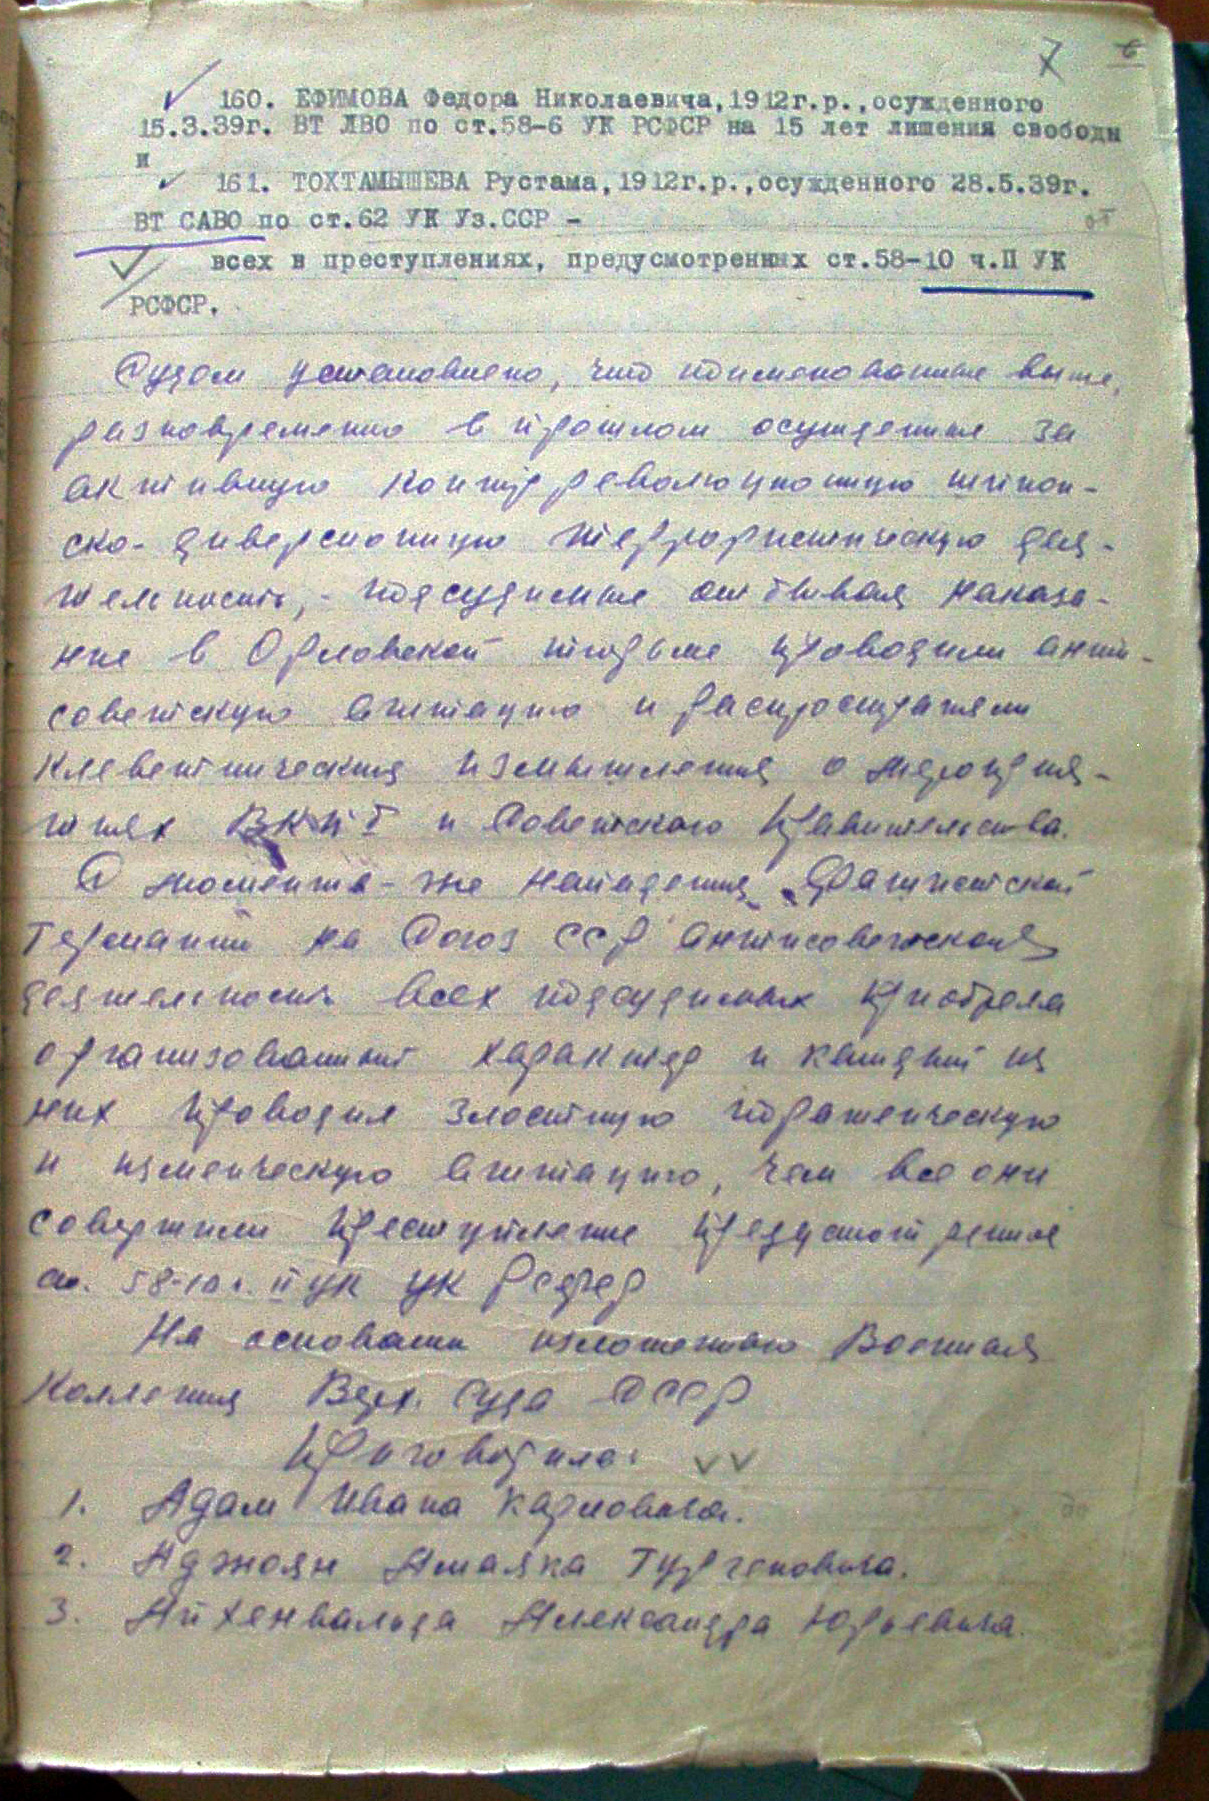 7 6
160. ЕФИМОВА Федора Николаевича, 1912г.р., осужденного
15.3.39г. ВТ ЛВО по ст.58-6 УК РСФСР на 15 лет лишения свободы
и
161. ТОХТАМЫШЕВА Рустама, 1912г.р., осужденного 28.5.39г.
ВТ САВО по ст.62 УК Уз.ССР -
всех в преступлениях, предусмотренных ст.58-10 ч.П УК
РСФСР.
Судом установлено, что поименованные выше,
разновременно в прошлом осужденные за
активную контрреволюционную шпион-
ско-диверсионную террористическую дея-
тельность, - подсудимые отбывая наказа-
ние в Орловской тюрьме проводили анти-
советскую агитацию и распространяли
клеветнические измышления о мероприя-
тиях ВКПб и Советского Правительства.
С момента-же нападения фашистской
Германии на Союз ССР антисоветская
деятельность всех подсудимых приобрела
организованный характер и каждый из
них проводил злостную пораженческую
и изменческую агитацию, чем все они
совершили преступление предусмотренное
ст. 58-10 ч. II УК УК РСФСР
На основании изложенного Военная
Коллегия Верх. Суда СССР
Приговорила:
1. Адам Ивана Карловича.
2. Аджоян Амаяка Тургеновича.
3. Айхенвальда Александра Юрьевича.